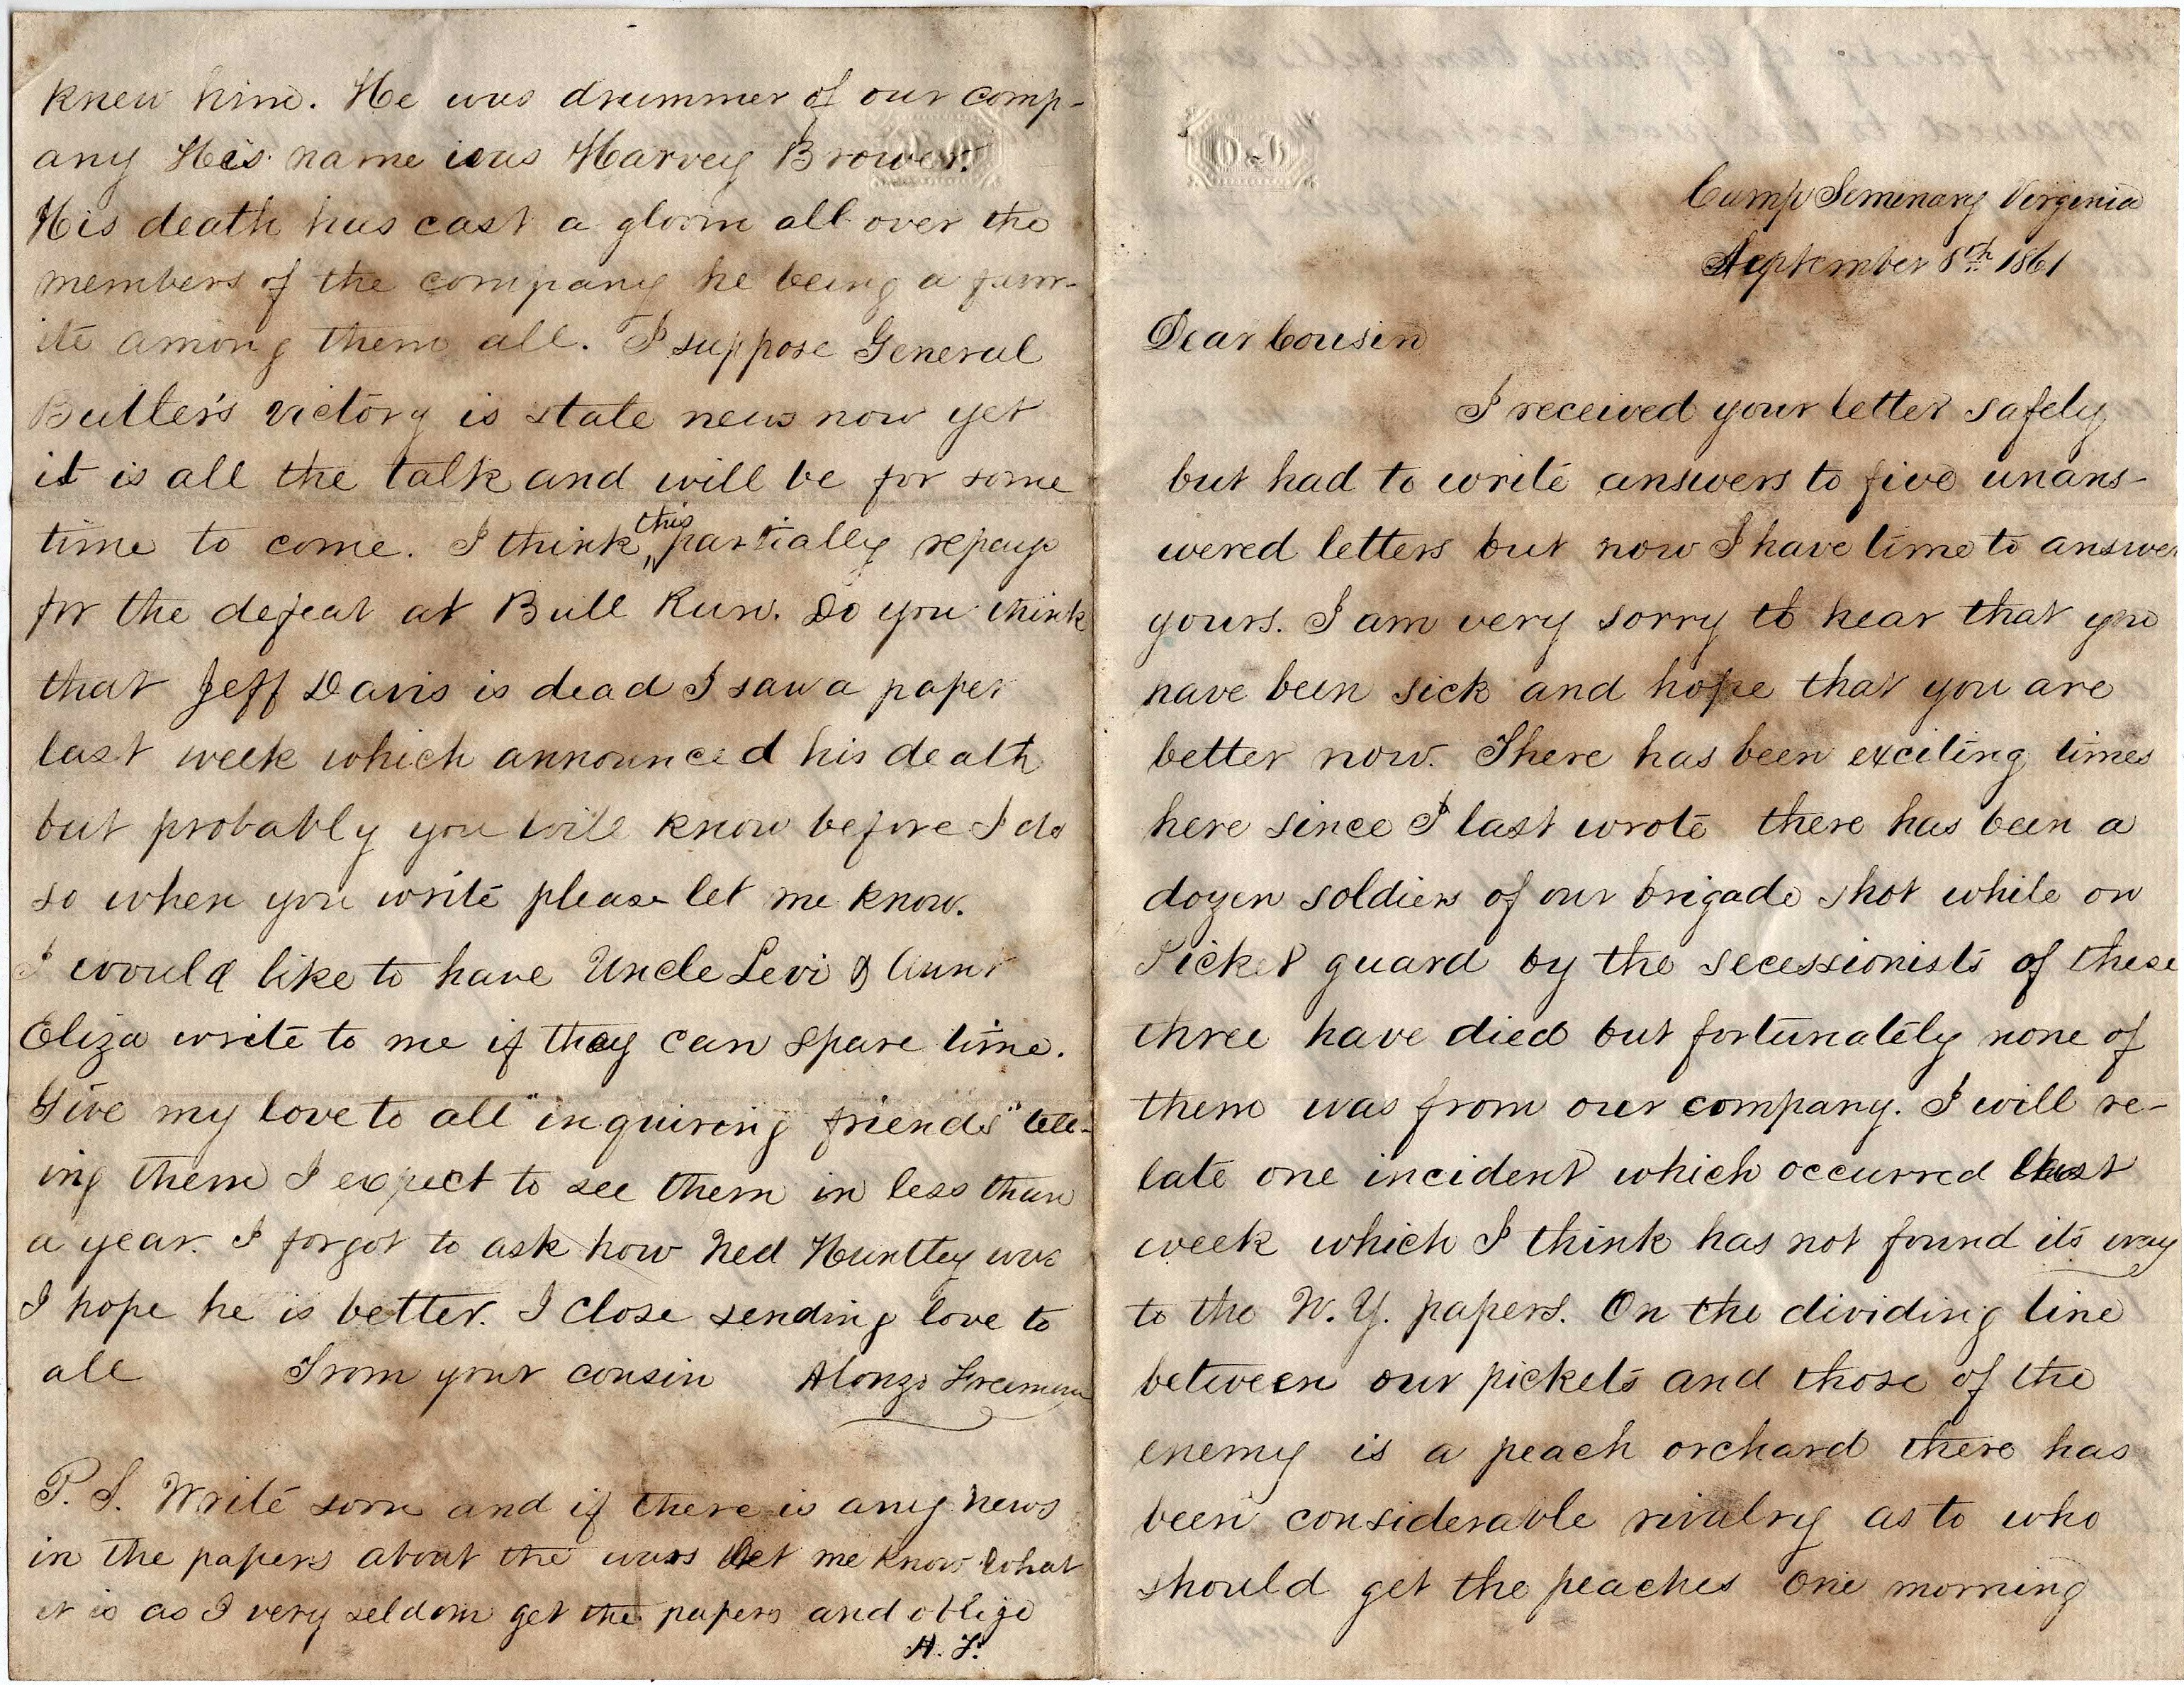 Camp Seminary Virginia
September 8th 1861
Dear Cousin
I received your letter safely
but had to write answers to five unans-
wered letters but now I have time to answer
yours. I am very sorry to hear that you
have been sick and hope that you are
better now. There has been exciting times
here since I last wrote there has been a
dozen soldiers of our brigade shot while on
Picket guard by the secessionists of these
three have died but fortunately none of
them was from our company. I will re-
late one incident which occurred last
week which I think has not found its way
to the N.Y. papers. On the dividing line
between our pickets and those of the
enemy is a peach orchard there has
been considerable rivalry as to who
should get the peaches One morning
knew him. He was drummer of our comp-
any His name was Harvey Brower.
His death has cast a gloom all over the
members of the company he being a favor-
ite among them all. I suppose General
Butler's victory is state news now yet
it is all the talk and will be for some
time to come. I think this partially repays
for the defeat at Bull Run. Do you think
that Jeff Davis is dead I saw a paper
last week which announced his death
but probably you will know before I do
so when you write please let me know.
I would like to have Uncle Levi & Aunt
Eliza write to me if they can spare time.
Give my love to all "inquiring friends" tell-
ing them I expect to see them in less than
a year. I forgot to ask how Ned Huntley was
I hope he is better. I close sending love to
all From your cousin Alonzo Freeman
P.S. Write soon and if there is any news
in the papers about the wars let me know what
it is as I very seldom get the papers and oblige
A. F.